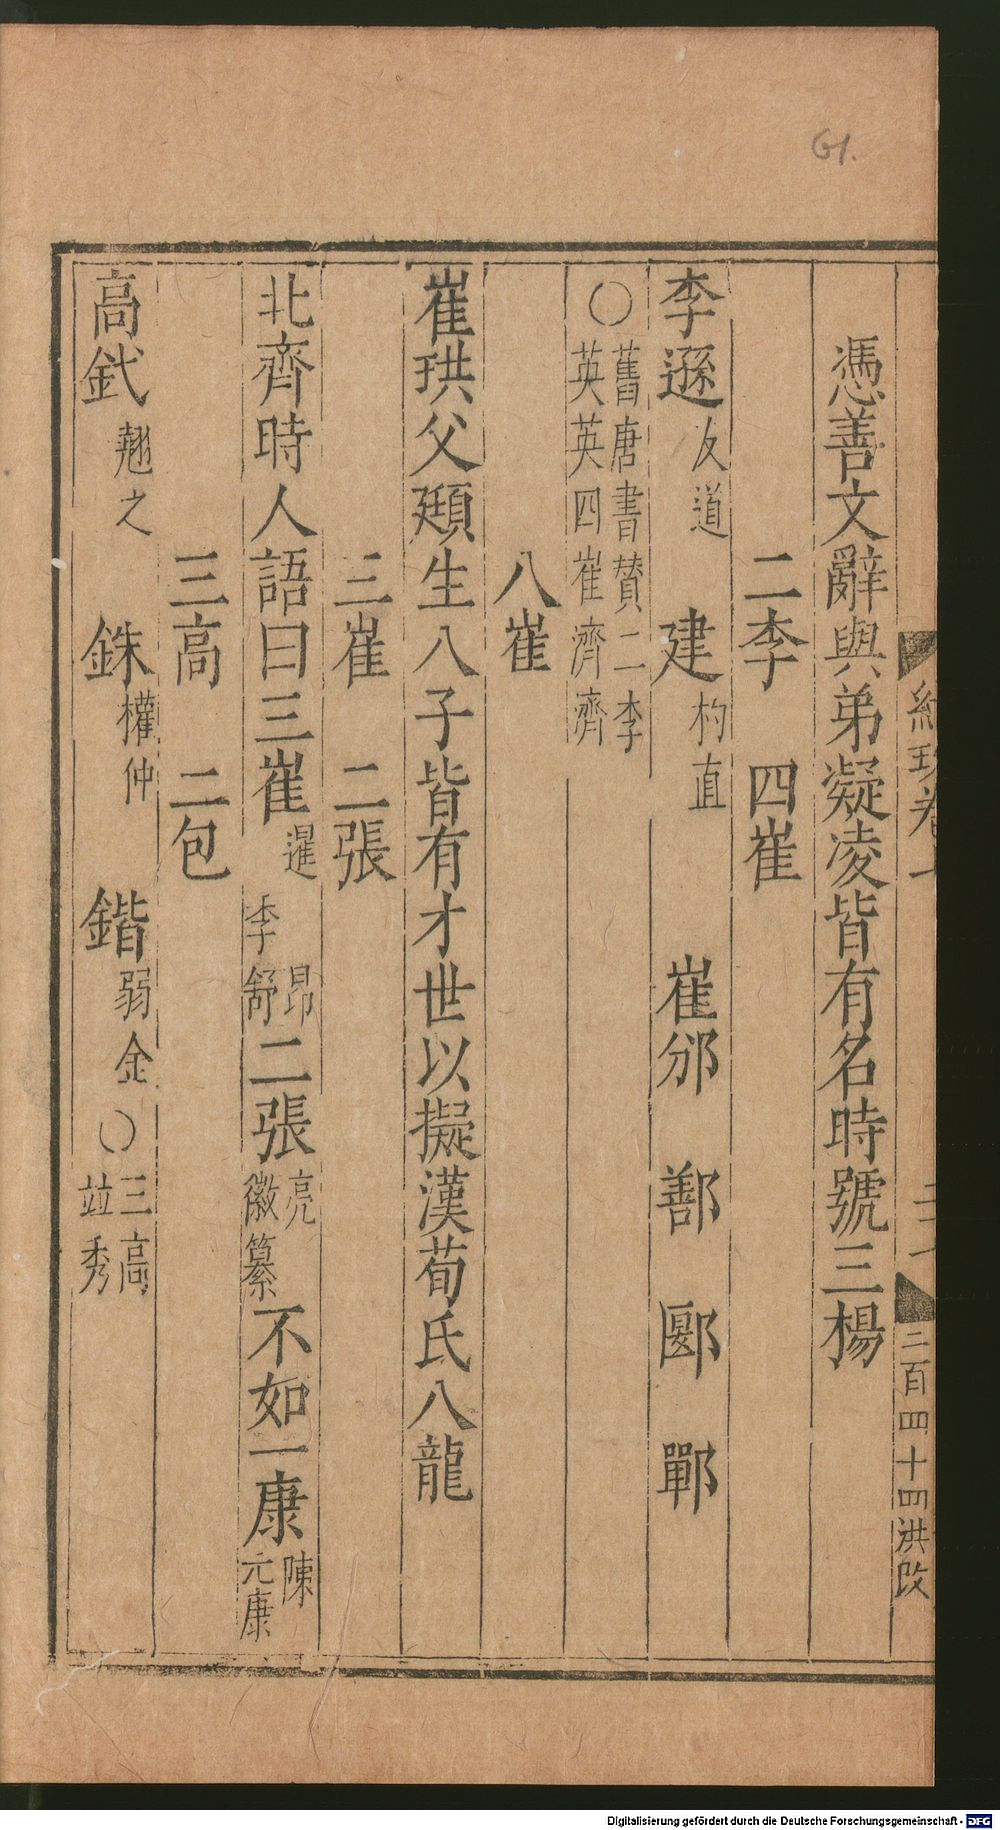 61.
二百四十四洪改
憑善文辭與弟凝凌皆有名時號三楊
二李　四崔
李遜友道　建杓直　崔邠　鄯　郾　鄲
○舊唐書贊二李
英英四崔濟濟
八崔
崔珙父頲生八子皆有才世以擬漢荀氏八龍
三崔　二張
北齊時人語曰三崔暹昂李舒二張亮徽纂不如一康陳元康
三高　二包
高釴翹之　銖權仲　鍇弱金○三高
竝秀
Digitalisierung gefördert durch die Deutsche Forschungsgemeinschaft - DFG